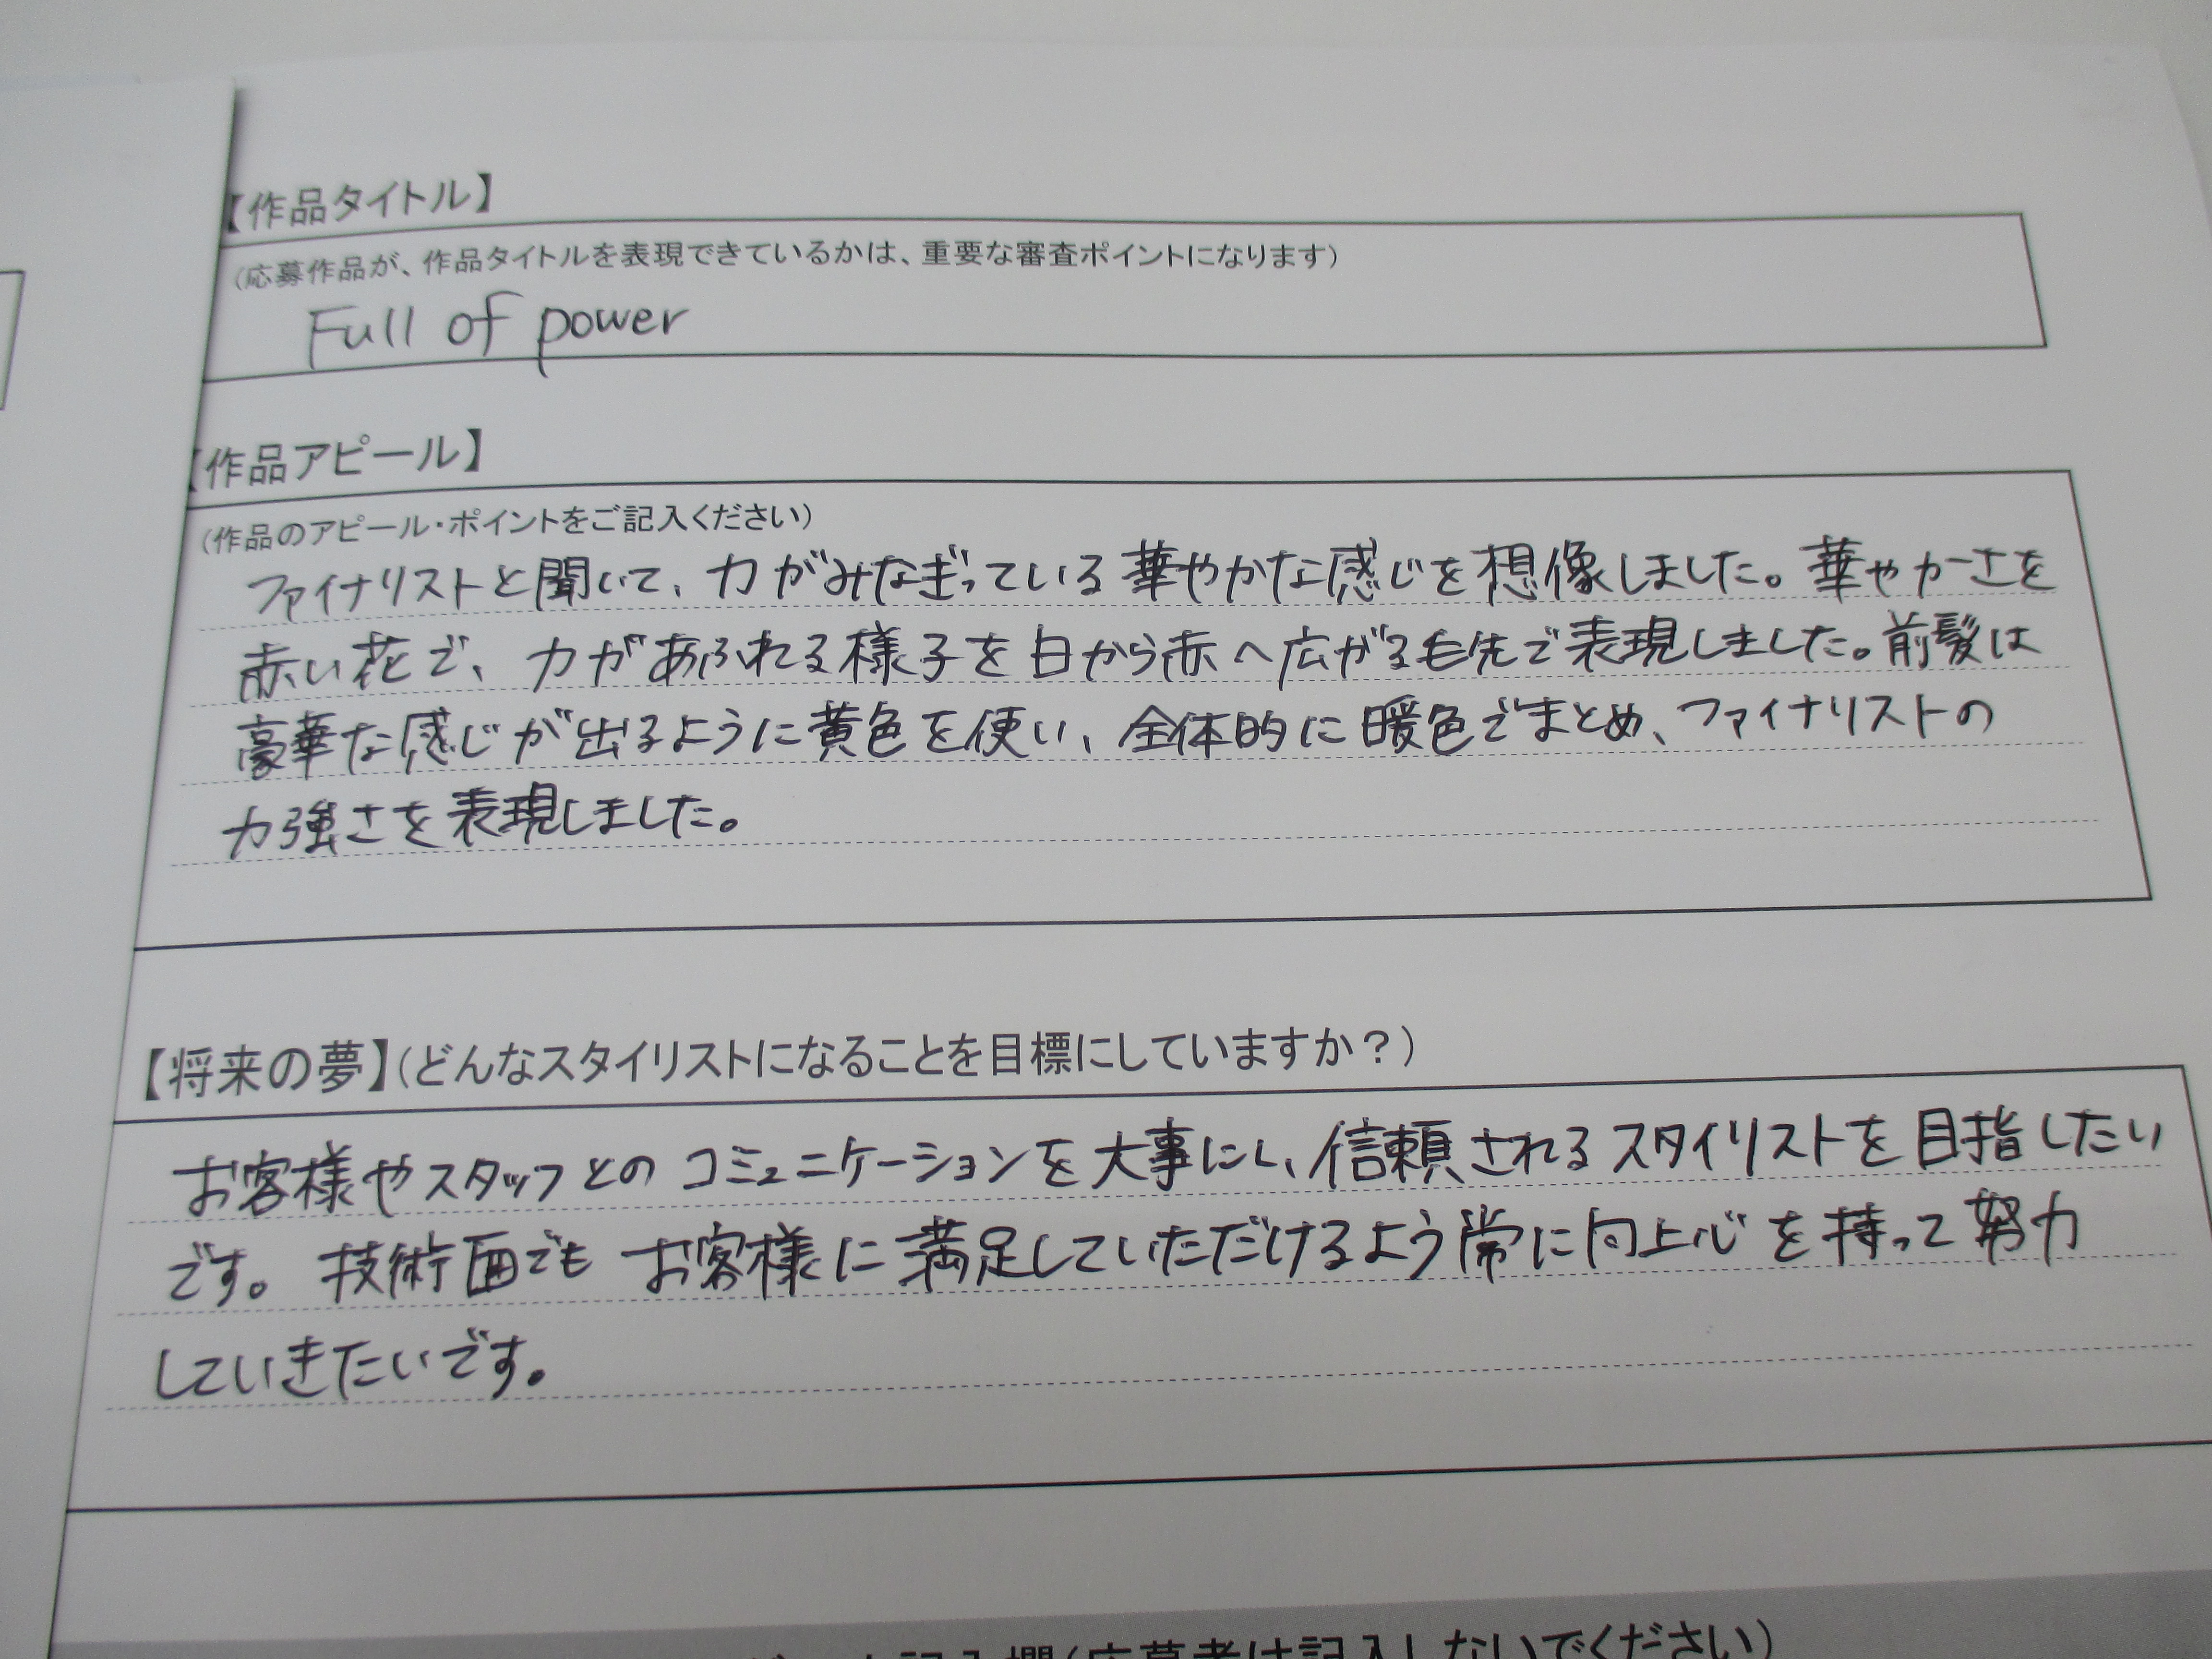 【作品タイトル】
(応募作品が、作品タイトルを表現できているかは、重要な審査ポイントになります)
Full of power
【作品アピール】
(作品のアピール・ポイントをご記入ください)
ファイナリストと聞いて、力がみなぎっている華やかな感じを想像しました。華やかさを
赤い花で、力があふれる様子を白から赤へ広がる毛先で表現しました。前髪は
豪華な感じが出るように黄色を使い、全体的に暖色でまとめ、ファイナリストの
力強さを表現しました。
【将来の夢】(どんなスタイリストになることを目標にしていますか？)
お客様やスタッフとのコミュニケーションを大事にし、信頼されるスタイリストを目指したい
です。技術面でもお客様に満足していただけるよう常に向上心を持って努力
していきたいです。
記入欄(応募者は記入しないでください)